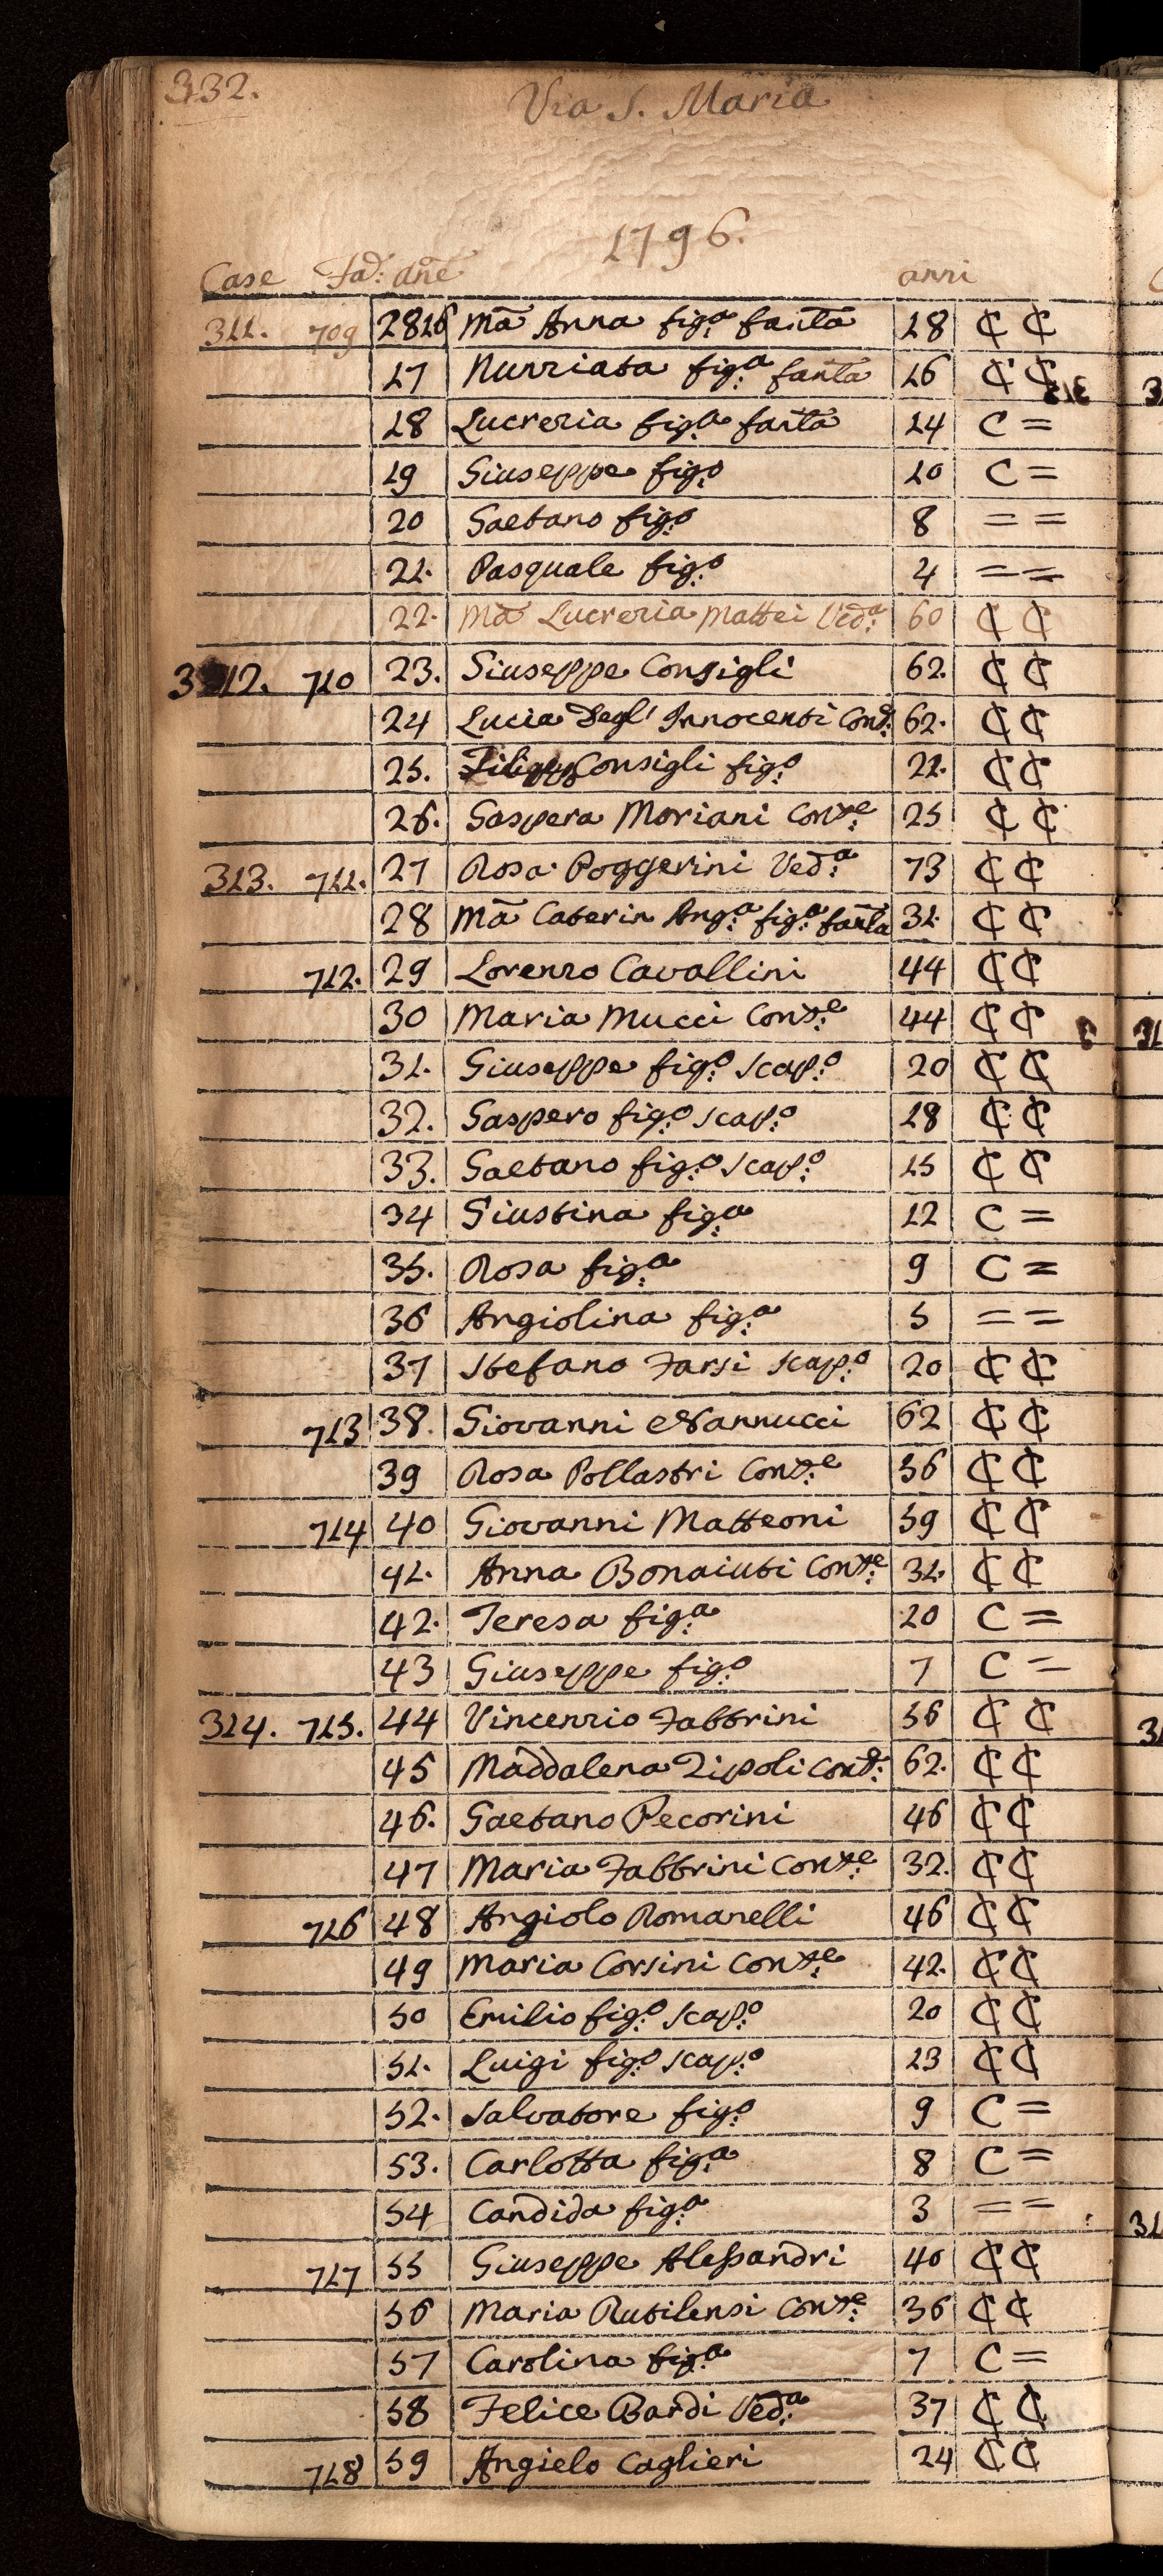 332.
Via S. Maria
1796.
Case Fad: añe anni
311. 709 2816 Mã Anna fig.a fanta 18 ₵ ₵
17 Nunziata fig.a fanta 16 ₵ ₵
18 Lucrezia fig.a fanta 14 C =
19 Giuseppe fig.o 10 C =
20 Gaetano fig.o 8 = =
21. Pasquale fig.o 4 = =
22. Mã Lucrezia Mattei Ved.a 60 ₵ ₵
312. 710 23. Giuseppe Consigli 62. ₵ ₵
24 Lucia Degl' Innocenti Cons. 62. ₵ ₵
25. Consigli fig.o 21. ₵ ₵
26. Gaspera Moriani Cons.e 25 ₵ ₵
313. 711. 27 Rosa Poggerini Ved.a 73 ₵ ₵
28 Mã Caterin Ang.a fig.a fanta 31. ₵ ₵
712. 29 Lorenzo Cavallini 44 ₵ ₵
30 Maria Mucci Cons.e 44 ₵ ₵
31. Giuseppe fig.o scap.o 20 ₵ ₵
32. Gaspero fig.o scap.o 18 ₵ ₵
33. Gaetano fig.o scap.o 15 ₵ ₵
34 Giustina fig.a 12 C =
35. Rosa fig.a 9 C =
36 Angiolina fig.a 5 = =
37 Stefano Farsi scap.o 20 ₵ ₵
713 38. Giovanni Nannucci 62 ₵ ₵
39 Rosa Pollastri Cons.e 56 ₵ ₵
714 40 Giovanni Matteoni 59 ₵ ₵
41. Anna Bonaiuti Cons.e 31. ₵ ₵
42. Teresa fig.a 10 C =
43 Giuseppe fig.o 7 C =
314. 715. 44 Vincenzio Fabbrini 56 ₵ ₵
45 Maddalena Zipoli cons. 62. ₵ ₵
46. Gaetano Pecorini 46 ₵ ₵
47 Maria Fabbrini Cons.e 32. ₵ ₵
716 48 Angiolo Romanelli 46 ₵ ₵
49 Maria Corsini Cons.e 42. ₵ ₵
50 Emilio fig.o scap.o 20 ₵ ₵
51. Luigi fig.o scap.o 13 ₵ ₵
52. Salvatore fig.o 9 C =
53. Carlotta fig.a 8 C =
54 Candida fig.a 3 = =
717 55 Giuseppe Alessandri 40 ₵ ₵
56 Maria Rutilensi Cons.e 36 ₵ ₵
57 Carolina fig.a 7 C =
58 Felice Bardi Ved.a 37 ₵ ₵
718 59 Angielo Caglieri 24 ₵ ₵